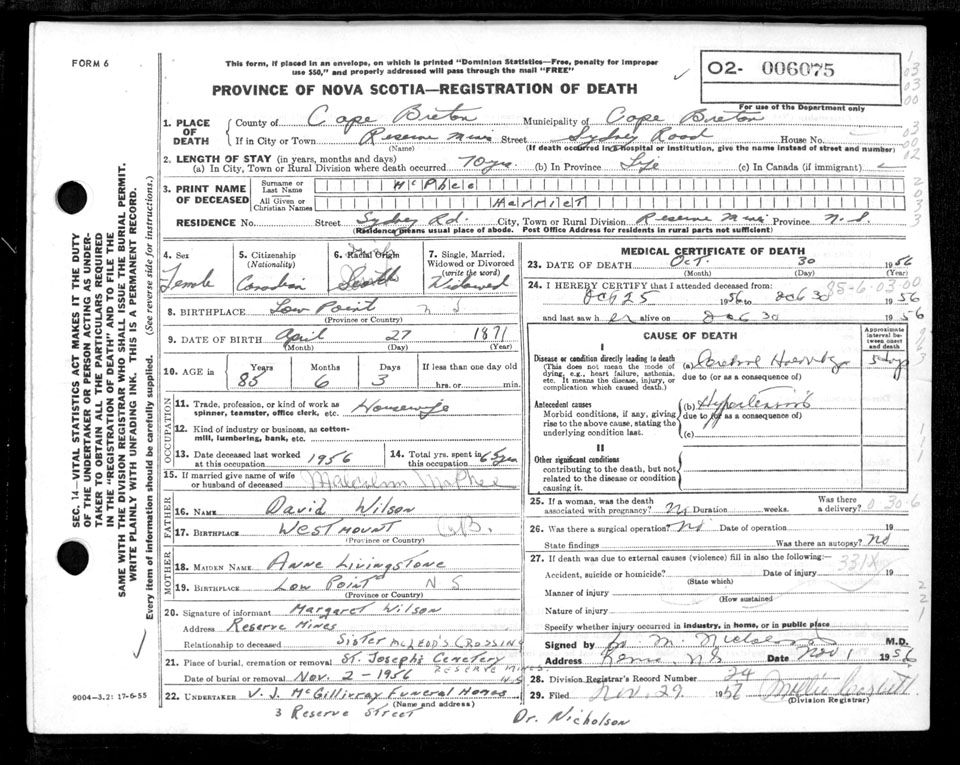 FORM 6
This form, if placed in an envelope, on which is printed "Dominion Statistics—Free, penalty for improper
use $50," and properly addressed will pass through the mail "FREE"
O2- 006075
For use of the Department only
PROVINCE OF NOVA SCOTIA—REGISTRATION OF DEATH
1. PLACE OF DEATH County of Cape Breton Municipality of Cape Breton
If in City or Town Reserve Mines Street Sydney Road House No.
(Name) (If death occurred in a hospital or institution, give the name instead of street and number)
2. LENGTH OF STAY (in years, months and days)
(a) In City, Town or Rural Division where death occurred 70 yrs (b) In Province Life (c) In Canada (if immigrant)
3. PRINT NAME OF DECEASED Surname or Last Name McPhee
All Given or Christian Names Harriet
RESIDENCE No. Street Sydney Rd. City, Town or Rural Division Reserve Mines Province N.S.
(Residence means usual place of abode. Post Office Address for residents in rural parts not sufficient)
4. Sex Female
5. Citizenship (Nationality) Canadian
6. Racial Origin Scotch
7. Single, Married, Widowed or Divorced (write the word) Widowed
8. BIRTHPLACE Low Point N S
(Province or Country)
9. DATE OF BIRTH April 27 1871
(Month) (Day) (Year)
10. AGE in Years 85 Months 6 Days 3 If less than one day old hrs. or min.
OCCUPATION
11. Trade, profession, or kind of work as spinner, teamster, office clerk, etc. Housewife
12. Kind of industry or business, as cotton-mill, lumbering, bank, etc.
13. Date deceased last worked at this occupation 1956
14. Total yrs. spent in this occupation
15. If married give name of wife or husband of deceased Malcolm McPhee
FATHER
16. NAME David Wilson
17. BIRTHPLACE Westmount C.B.
(Province or Country)
MOTHER
18. MAIDEN NAME Anne Livingstone
19. BIRTHPLACE Low Point N S
(Province or Country)
20. Signature of informant Margaret Wilson
Address Reserve Mines
Relationship to deceased Sister McLeod's Crossing
21. Place of burial, cremation or removal St. Joseph's Cemetery
Reserve Mines N.S
Date of burial or removal Nov. 2-1956
22. UNDERTAKER V. J. McGillivray Funeral Homes
(Name and address)
3 Reserve Street
Dr. Nicholson
MEDICAL CERTIFICATE OF DEATH
23. DATE OF DEATH Oct. 30 1956
(Month) (Day) (Year)
24. I HEREBY CERTIFY that I attended deceased from:
85-6-03-00
Oct 25 1956 to Oct 30 1956
and last saw her alive on Oct 30 1956
CAUSE OF DEATH
Approximate interval between onset and death
I
Disease or condition directly leading to death
(This does not mean the mode of dying, e.g., heart failure, asthenia, etc. It means the disease, injury, or complication which caused death.)
(a) Cerebral Hemorrhage 5 days
due to (or as a consequence of)
Antecedent causes
Morbid conditions, if any, giving rise to the above cause, stating the underlying condition last.
(b) Hypertension
due to (or as a consequence of)
(c)
II
Other significant conditions
contributing to the death, but not related to the disease or condition causing it.
25. If a woman, was the death associated with pregnancy? No Duration weeks. Was there a delivery?
26. Was there a surgical operation? No Date of operation 19
State findings Was there an autopsy? No
27. If death was due to external causes (violence) fill in also the following:—
331X
Accident, suicide or homicide? Date of injury 19
(State which)
Manner of injury
(How sustained
Nature of injury
Specify whether injury occurred in industry, in home, or in public place
Signed by M. Nicholson M.D.
Address Reserve, N.S Date Nov 1 1956
28. Division Registrar's Record Number 24
29. Filed Nov. 29. 1956
(Division Registrar)
SEC. 14—VITAL STATISTICS ACT MAKES IT THE DUTY
OF THE UNDERTAKER OR PERSON ACTING AS UNDER-
TAKER TO OBTAIN ALL THE PARTICULARS REQUIRED
IN THE "REGISTRATION OF DEATH" AND TO FILE THE
SAME WITH THE DIVISION REGISTRAR WHO SHALL ISSUE THE BURIAL PERMIT.
WRITE PLAINLY WITH UNFADING INK. THIS IS A PERMANENT RECORD.
Every item of information should be carefully supplied. (See reverse side for instructions.)
9004-3.2: 17-6-55